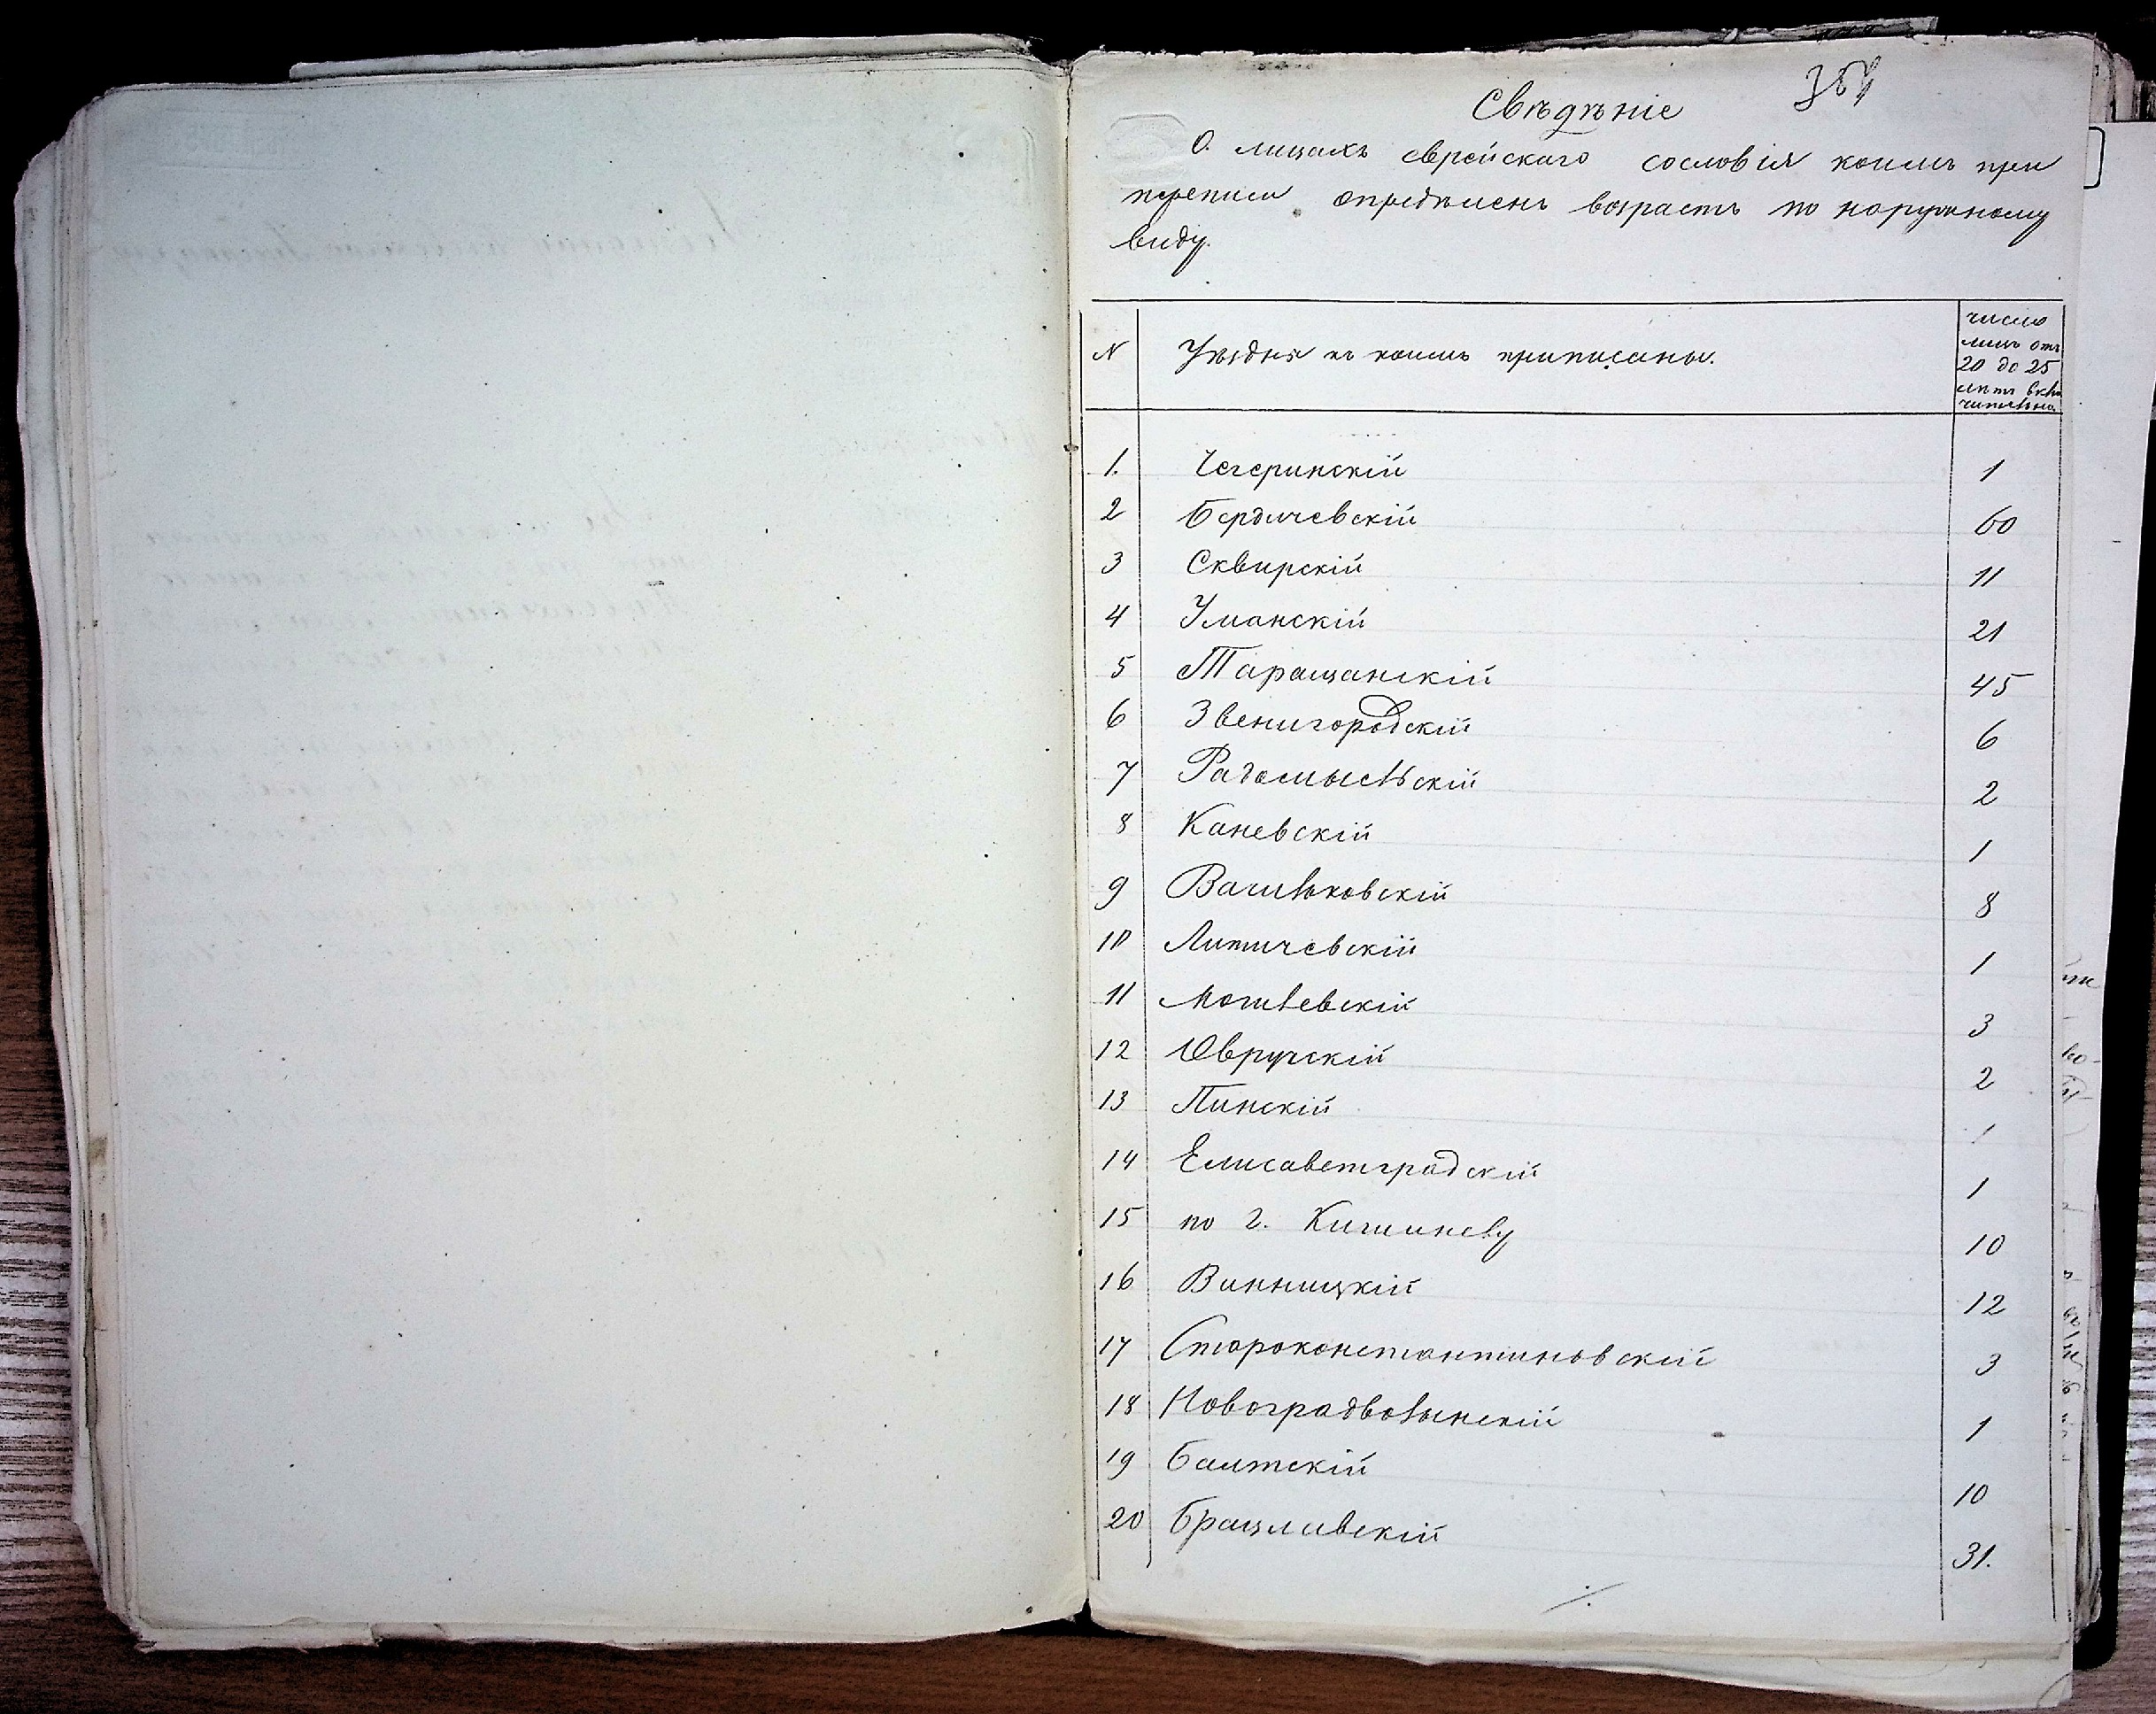 Свѣдѣніе
О. лицахъ еврейскаго сословія коимъ при
переписи опредѣленъ возрастъ по наружному
виду.
N Уѣзды къ коимъ приписаны. число
лицъ отъ
20 до 25
лѣтъ вклю
чительно
1. Чегеринскій 1
2 Бердичевскій 60
3 Сквирскій 11
4 Уманскій 21
5 Таращанскій 45
6 Звенигородскій 6
7 Радомысльскій 2
8 Каневскій 1
9 Васильковскій 8
10 Литичевскій 1
11 Могилевскій 3
12 Овручскій 2
13 Пинскій 1
14 Елисаветградскій 1
15 по г. Кишиневу 10
16 Винницкій 12
17 Староконстантиновскій 3
18 Новоградволынскій 1
19 Балтскій 10
20 Брацлавскій 31.